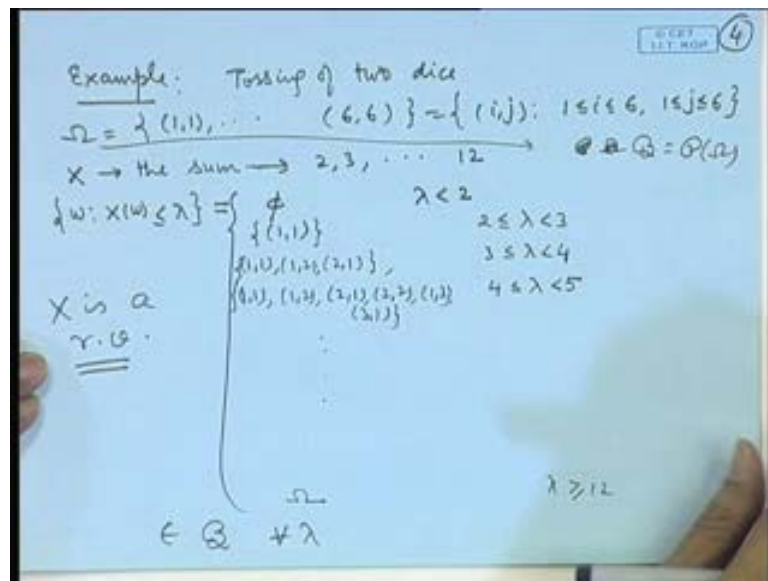 © CET
I.I.T. KGP
4
Example: Tossing of two dice
Ω = { (1,1), ... (6,6) } = { (i,j): 1≤i≤6, 1≤j≤6}
X → the sum → 2, 3, ... 12 B = P(Ω)
{ω: X(ω) ≤ λ} = { ϕ λ < 2
{(1,1)} 2 ≤ λ < 3
{(1,1), (1,2), (2,1)}, 3 ≤ λ < 4
{(1,1), (1,2), (2,1), (2,2), (1,3) 4 ≤ λ < 5
(3,1)}
X is a
r.v.
Ω λ ≥ 12
∈ B ∀ λ